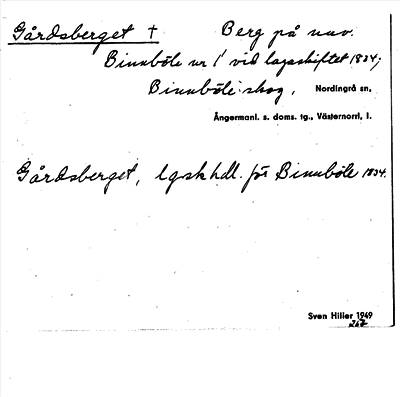 Gårdsberget † Berg på nuv.
Binnböle nr 1 vid lagaskiftet 1834;
Binnböle: skog, Nordingrå sn,
Ångermanl. s. doms. tg., Västernorrl. l.
Gårdsberget, lgskhdl. för Binnböle 1834.
Sven Hiller 1949